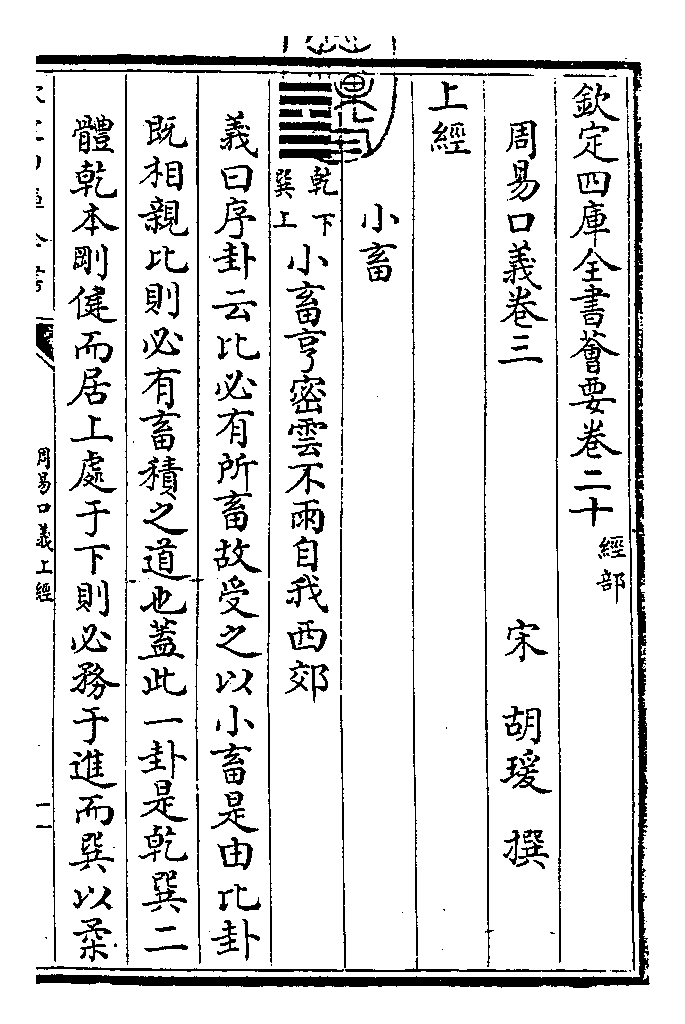 欽定四庫全書薈要卷二十經部
周易口義卷三 宋 胡瑗 撰
上經
小畜
乾下巽上小畜亨密雲不雨自我西郊
義曰序卦云比必有所畜故受之以小畜是由比卦
既相親比則必有畜積之道也蓋此一卦是乾巽二
體乾本剛健而居上處于下則必務于進而巽以柔
周易口義上經